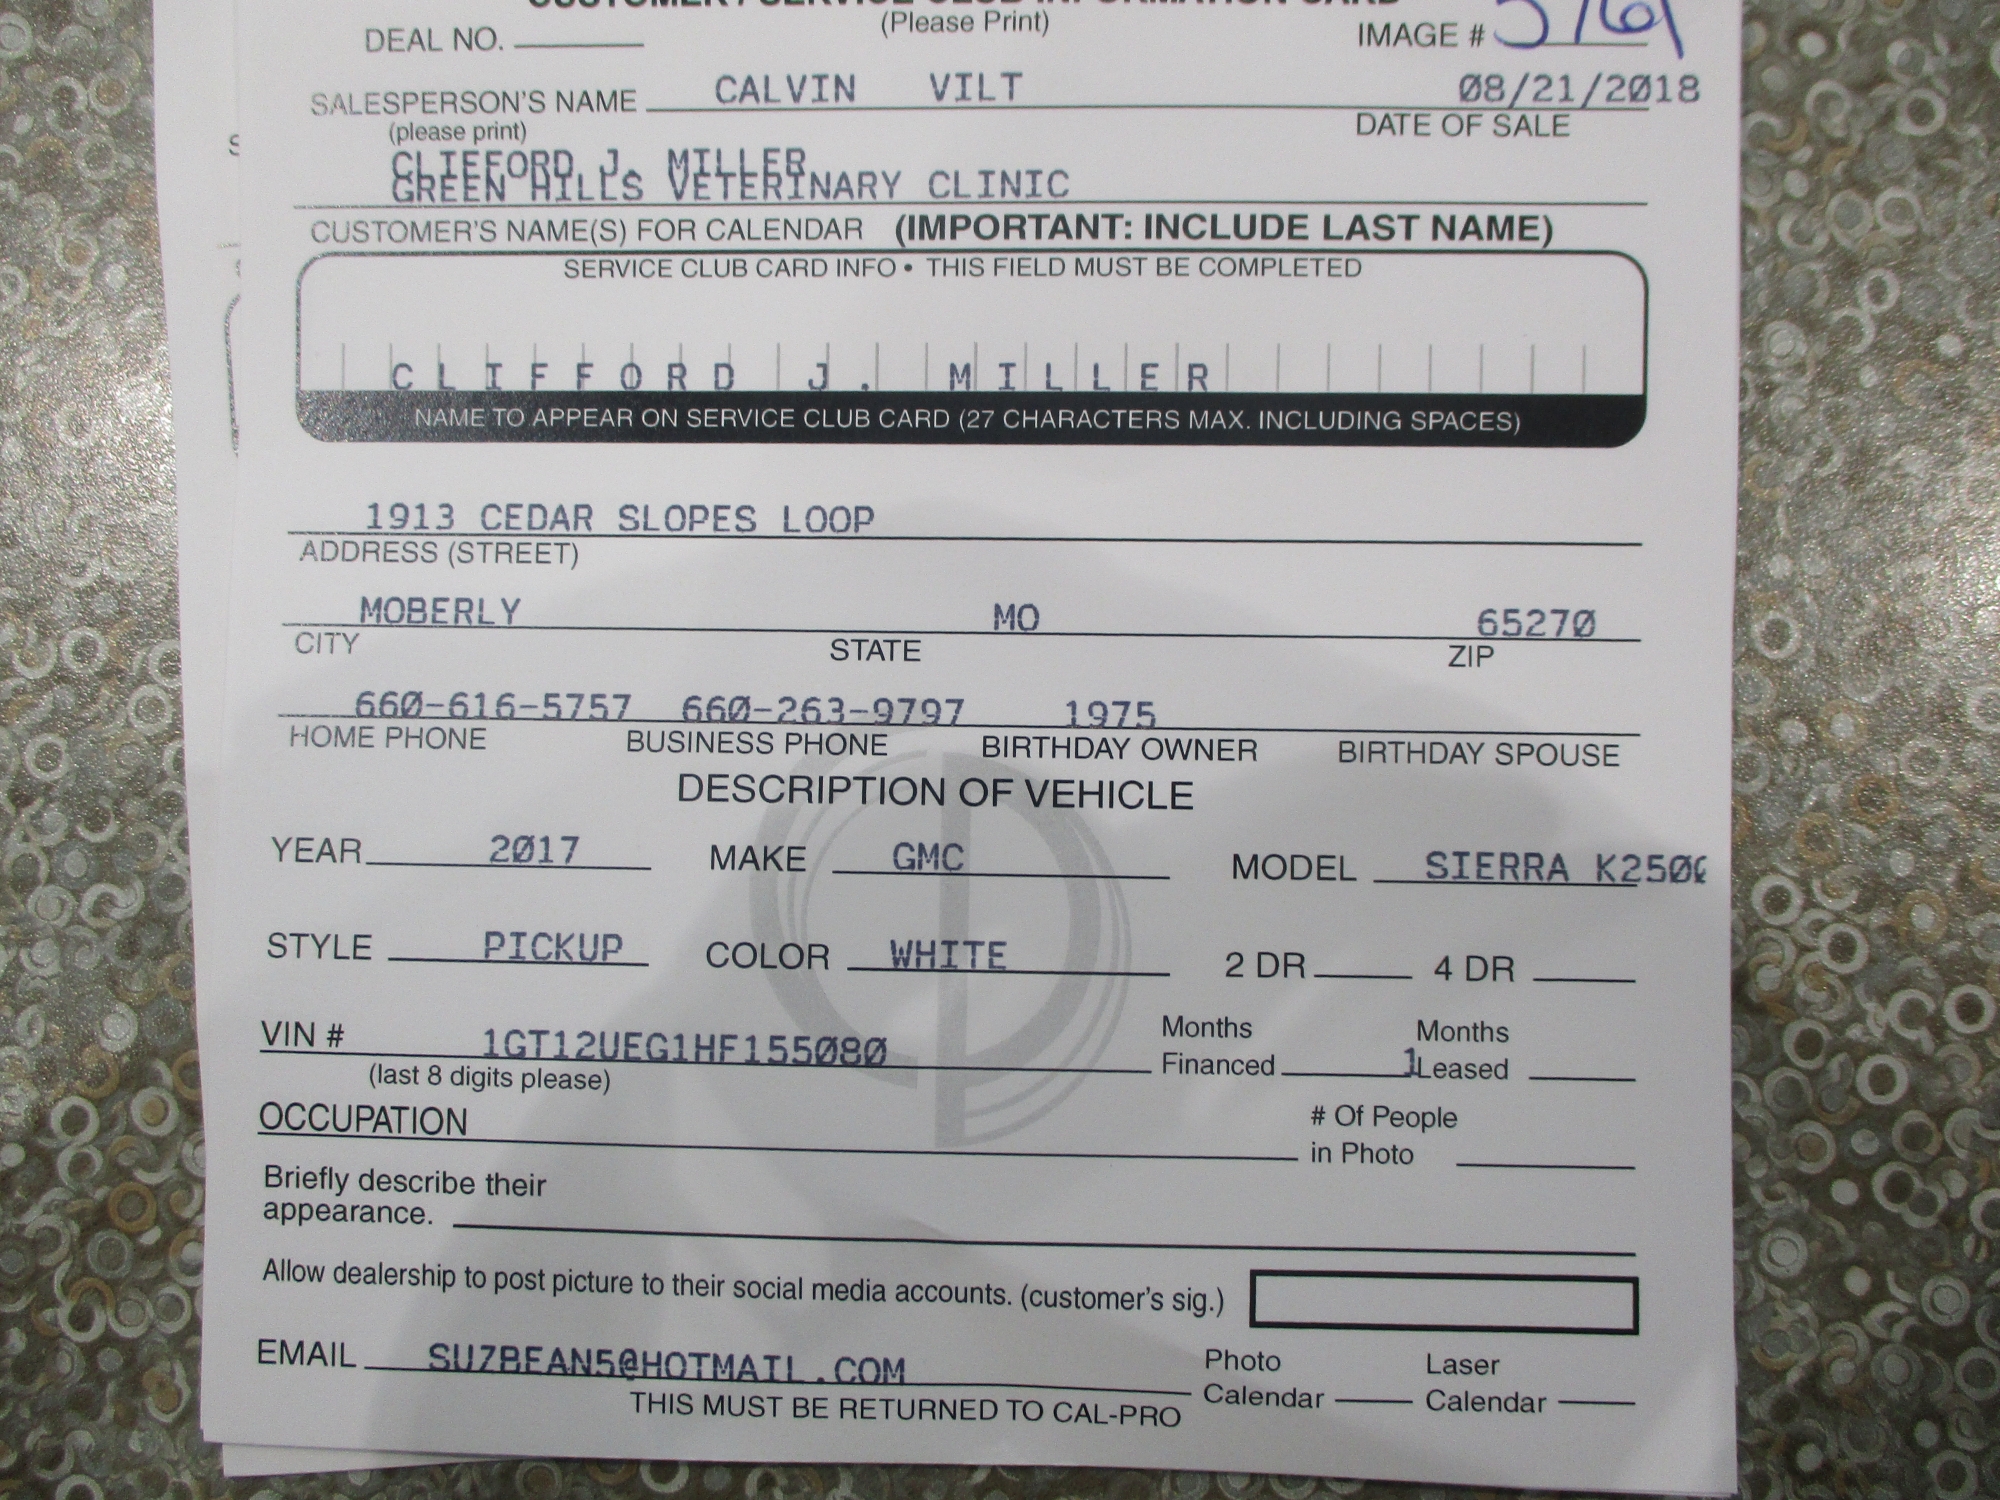 CUSTOMER / SERVICE CLUB INFORMATION CARD
(Please Print)
DEAL NO. IMAGE #
CALVIN VILT 08/21/2018
SALESPERSON'S NAME DATE OF SALE
(please print)
CLIFFORD J. MILLER
GREEN HILLS VETERINARY CLINIC
CUSTOMER'S NAME(S) FOR CALENDAR (IMPORTANT: INCLUDE LAST NAME)
SERVICE CLUB CARD INFO • THIS FIELD MUST BE COMPLETED
CLIFFORD J. MILLER
NAME TO APPEAR ON SERVICE CLUB CARD (27 CHARACTERS MAX. INCLUDING SPACES)
1913 CEDAR SLOPES LOOP
ADDRESS (STREET)
MOBERLY MO 65270
CITY STATE ZIP
660-616-5757 660-263-9797 1975
HOME PHONE BUSINESS PHONE BIRTHDAY OWNER BIRTHDAY SPOUSE
DESCRIPTION OF VEHICLE
YEAR 2017 MAKE GMC MODEL SIERRA K250
STYLE PICKUP COLOR WHITE 2 DR 4 DR
VIN # 1GT12UEG1HF155080 Months Financed 1 Months Leased
(last 8 digits please)
OCCUPATION # Of People in Photo
Briefly describe their
appearance.
Allow dealership to post picture to their social media accounts. (customer's sig.)
EMAIL SUZBEAN5@HOTMAIL.COM Photo Calendar Laser Calendar
THIS MUST BE RETURNED TO CAL-PRO